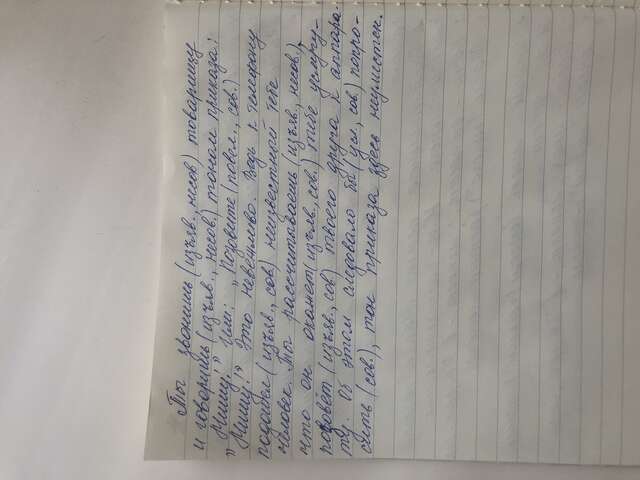 Ты звонишь (изъяв. несов) товарищу
и говоришь (изъяв., несов.) тоном приказа:
„Мишу!" Или: „Позовите (повел., сов.)
„Мишу!" Это невежливо. Ведь к телефону
подойдёт (изъяв., сов) неизвестный тебе
человек. Ты рассчитываешь (изъяв, несов),
что он окажет (изъяв., сов.) тебе услугу -
позовёт (изъяв., сов) твоего друга к аппара-
ту. Об этом следовало бы (усл, сов) попро-
сить (сов.), тон приказа здесь неуместен.